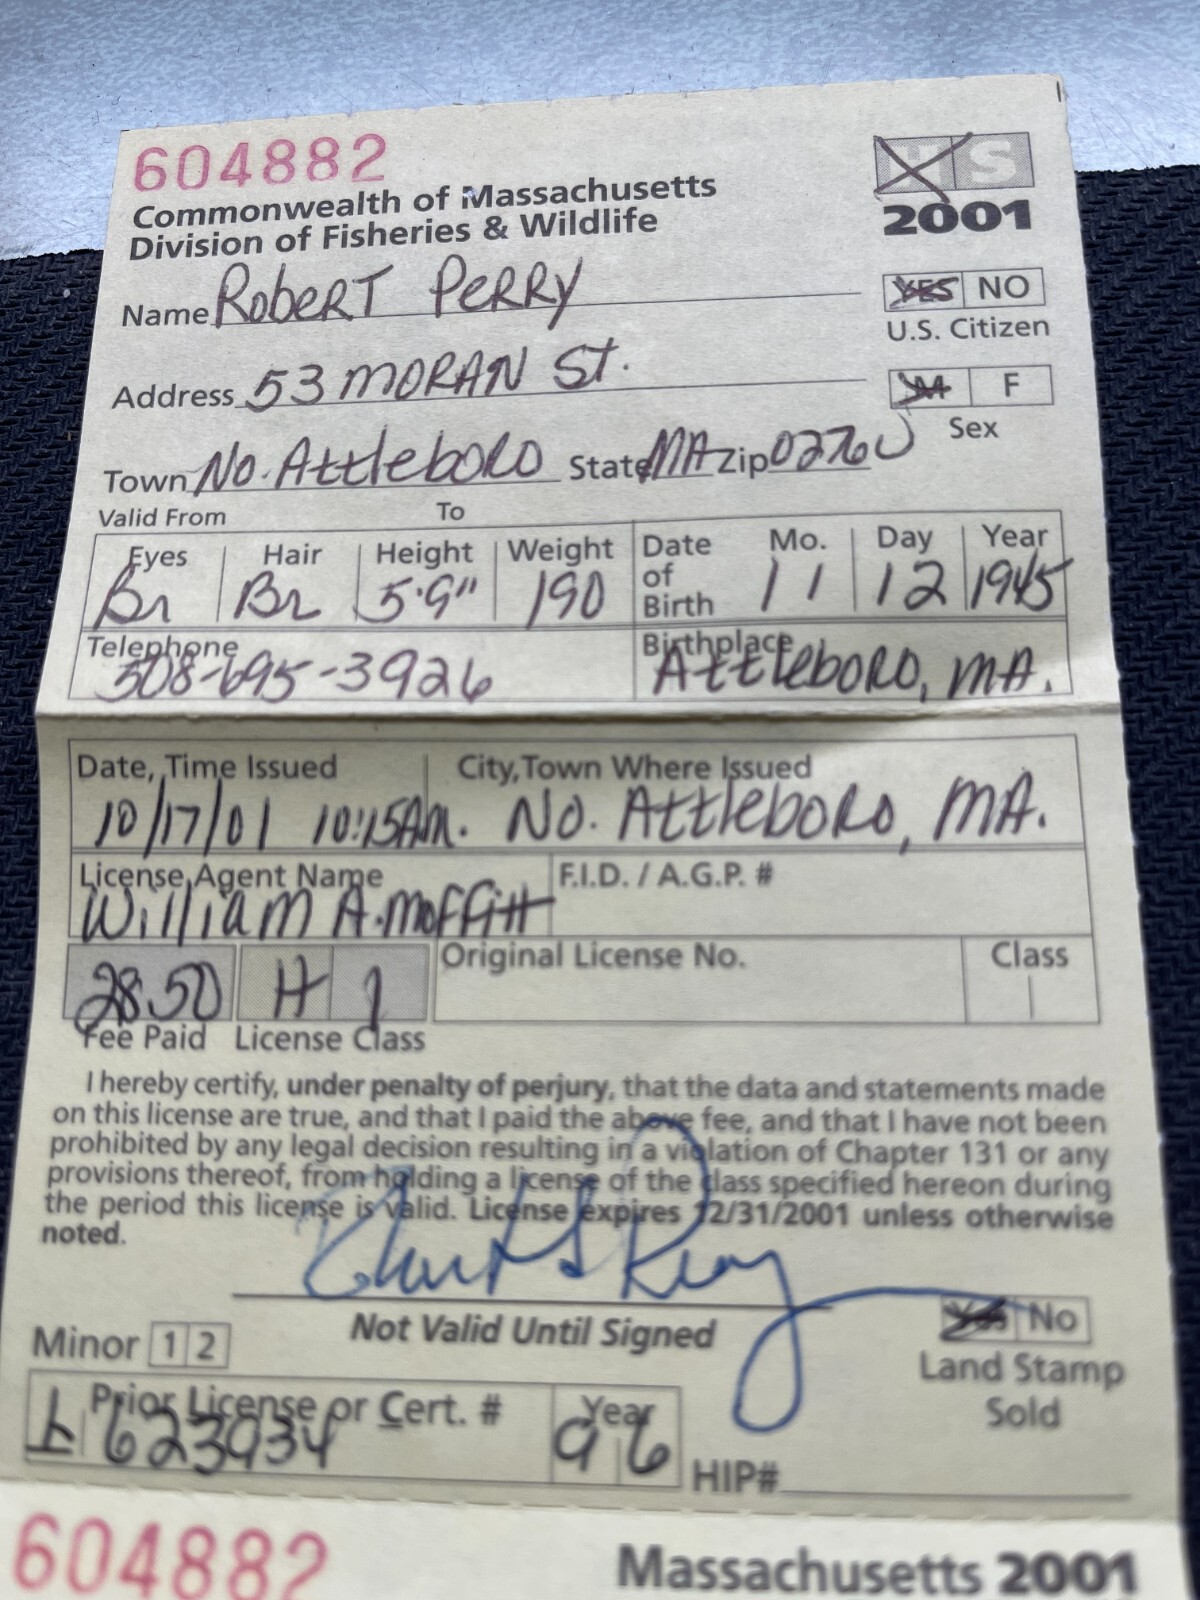 604882
H S
Commonwealth of Massachusetts
Division of Fisheries & Wildlife
2001
Name Robert Perry
YES NO
U.S. Citizen
Address 53 Moran St.
M F
Sex
Town No. Attleboro State MA Zip 02760
Valid From To
Eyes Hair Height Weight Date of Birth Mo. Day Year
Br Br 5'9" 190 11 12 1945
Telephone Birthplace
508-695-3926 Attleboro, MA.
Date, Time Issued City, Town Where Issued
10/17/01 10:15AM. No. Attleboro, MA.
License Agent Name F.I.D. / A.G.P. #
William A. Moffitt
28.50 H 1 Original License No. Class
Fee Paid License Class
I hereby certify, under penalty of perjury, that the data and statements made
on this license are true, and that I paid the above fee, and that I have not been
prohibited by any legal decision resulting in a violation of Chapter 131 or any
provisions thereof, from holding a license of the class specified hereon during
the period this license is valid. License expires 12/31/2001 unless otherwise
noted.
Not Valid Until Signed
Yes No
Minor 1 2
Land Stamp
Sold
Prior License or Cert. # Year
623934 96
HIP#
604882 Massachusetts 2001